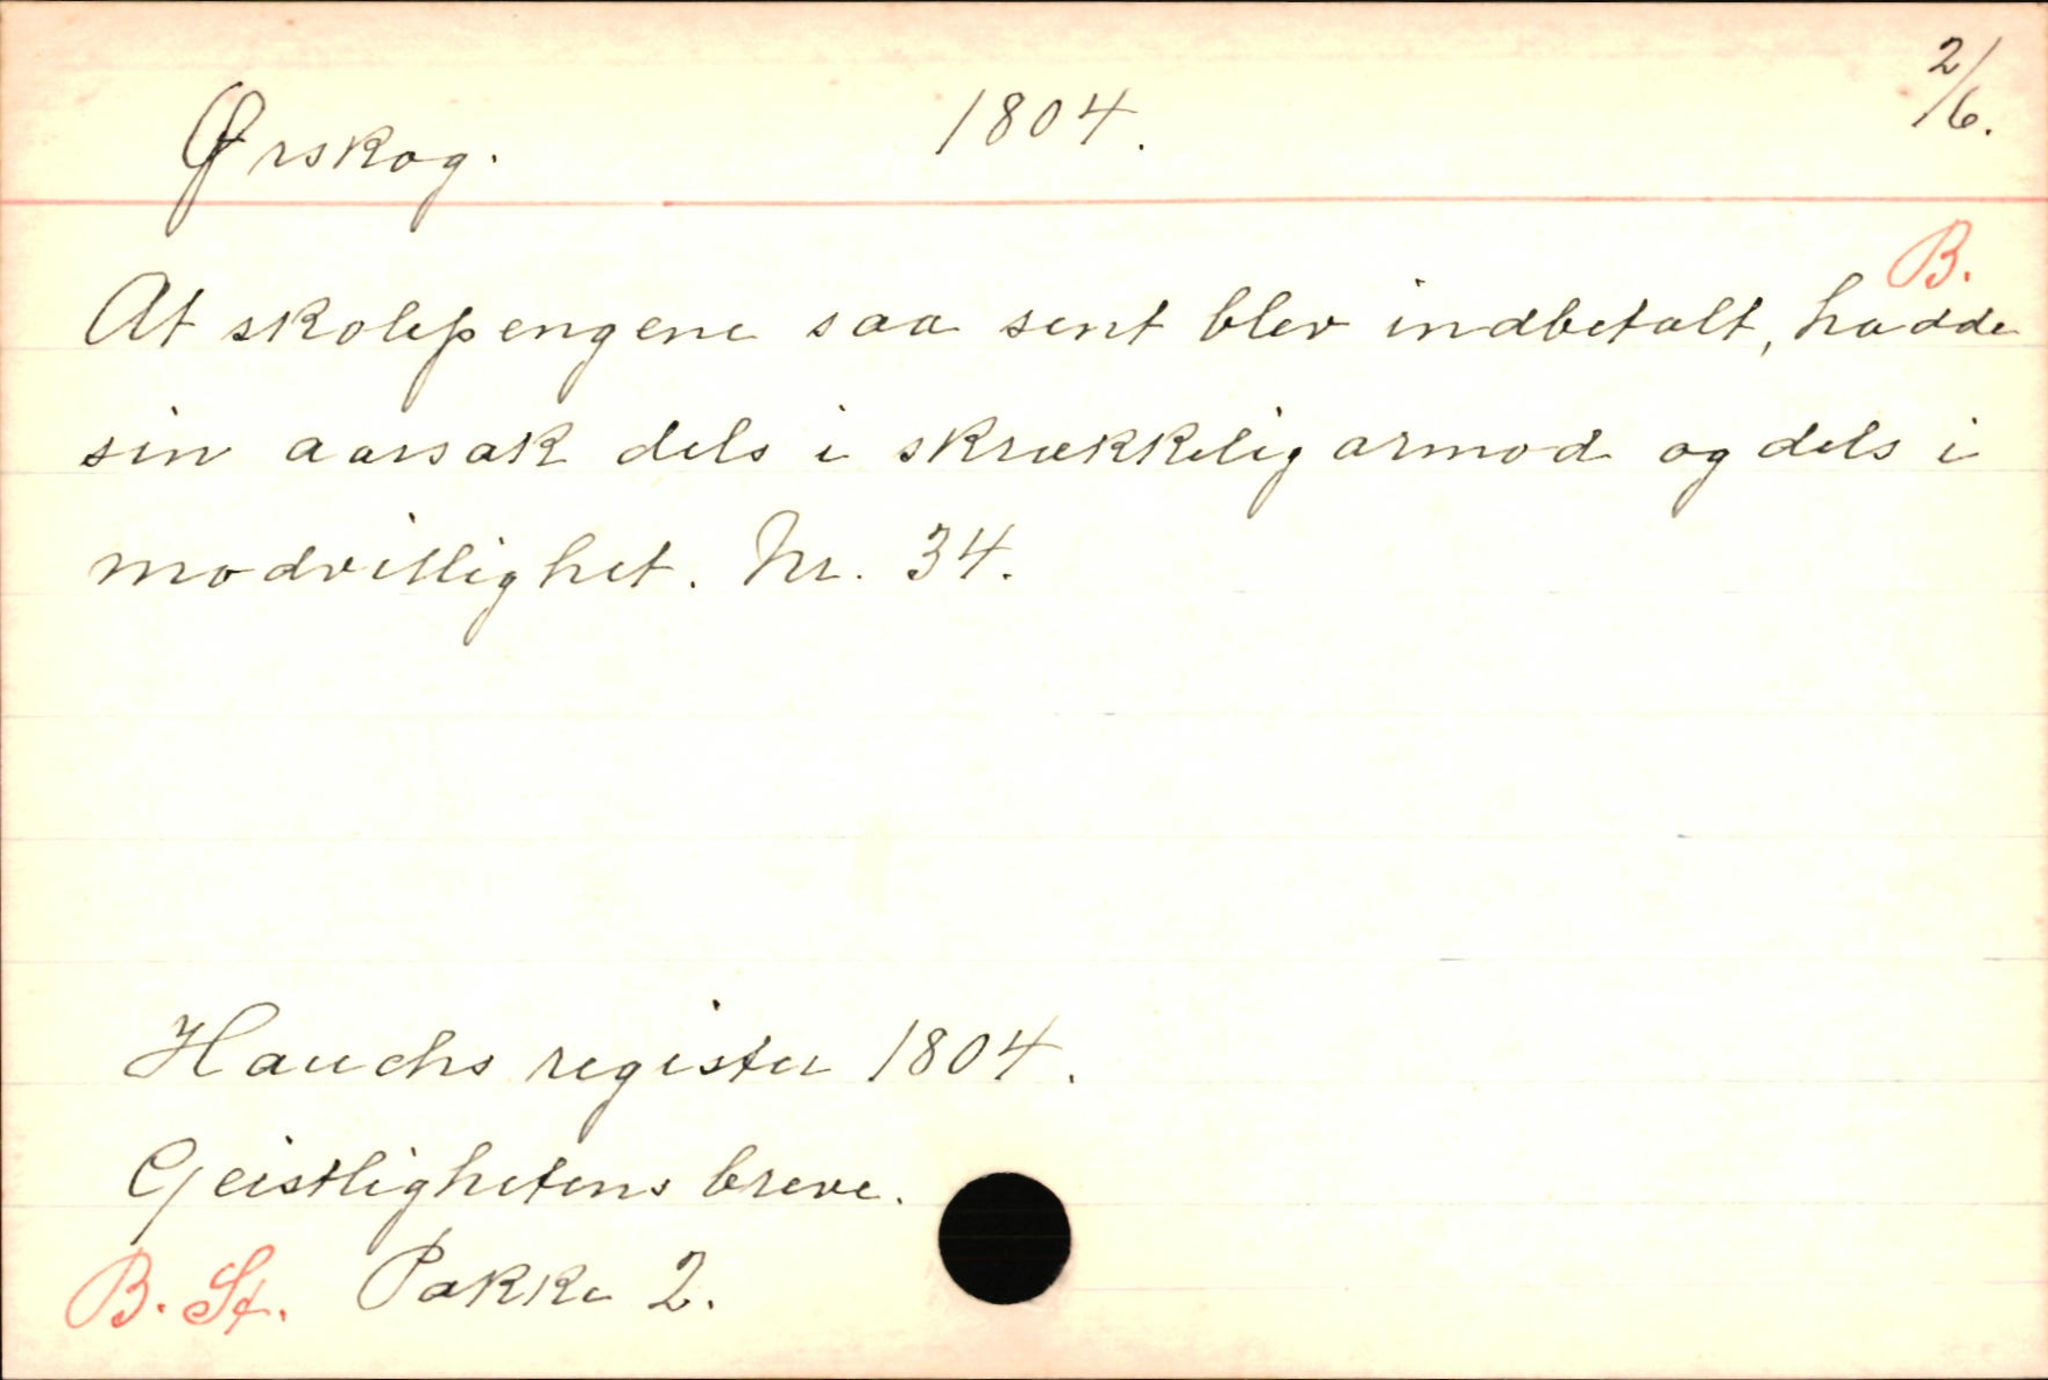 Ørskog. 1804. 2/6.
B.
At skolepengene saa sent blev indbetalt, hadde
sin aarsak dels i skrækkelig armod og dels i
modvillighet. Nr. 34.
Hauchs register 1804.
Geistlighetens breve.
B. St. Pakke 2.